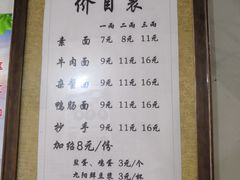 价目表
一两 二两 三两
素面 7元 8元 11元
牛肉面 9元 11元 16元
杂酱面 9元 11元 16元
鸭肠面 9元 11元 16元
抄手 9元 11元 16元
加结8元/份
盐蛋、鸡蛋 3元/个
九阳鲜豆浆 3元/杯